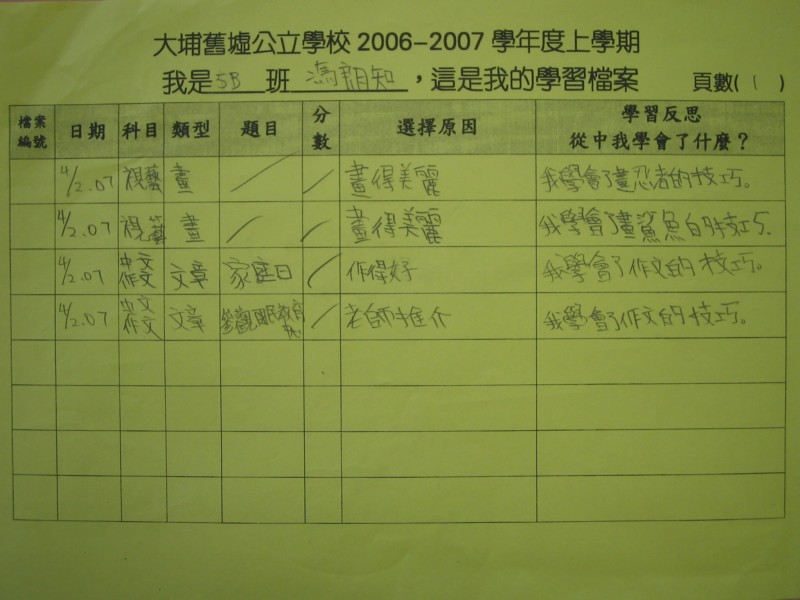 大埔舊墟公立學校 2006-2007 學年度上學期
我是 5B 班 馮朗知 ，這是我的學習檔案 頁數( 1 )
檔案編號 日期 科目 類型 題目 分數 選擇原因 學習反思 從中我學會了什麼？
4/2.07 視藝 畫 / / 畫得美麗 我學會了畫忍者的技巧。
4/2.07 視藝 畫 / / 畫得美麗 我學會了畫鯊魚的技巧.
4/2.07 中文作文 文章 家庭日 / 作得好 我學會了作文的技巧。
4/2.07 中文作文 文章 參觀國民教育 / 老師推介 我學會了作文的技巧。